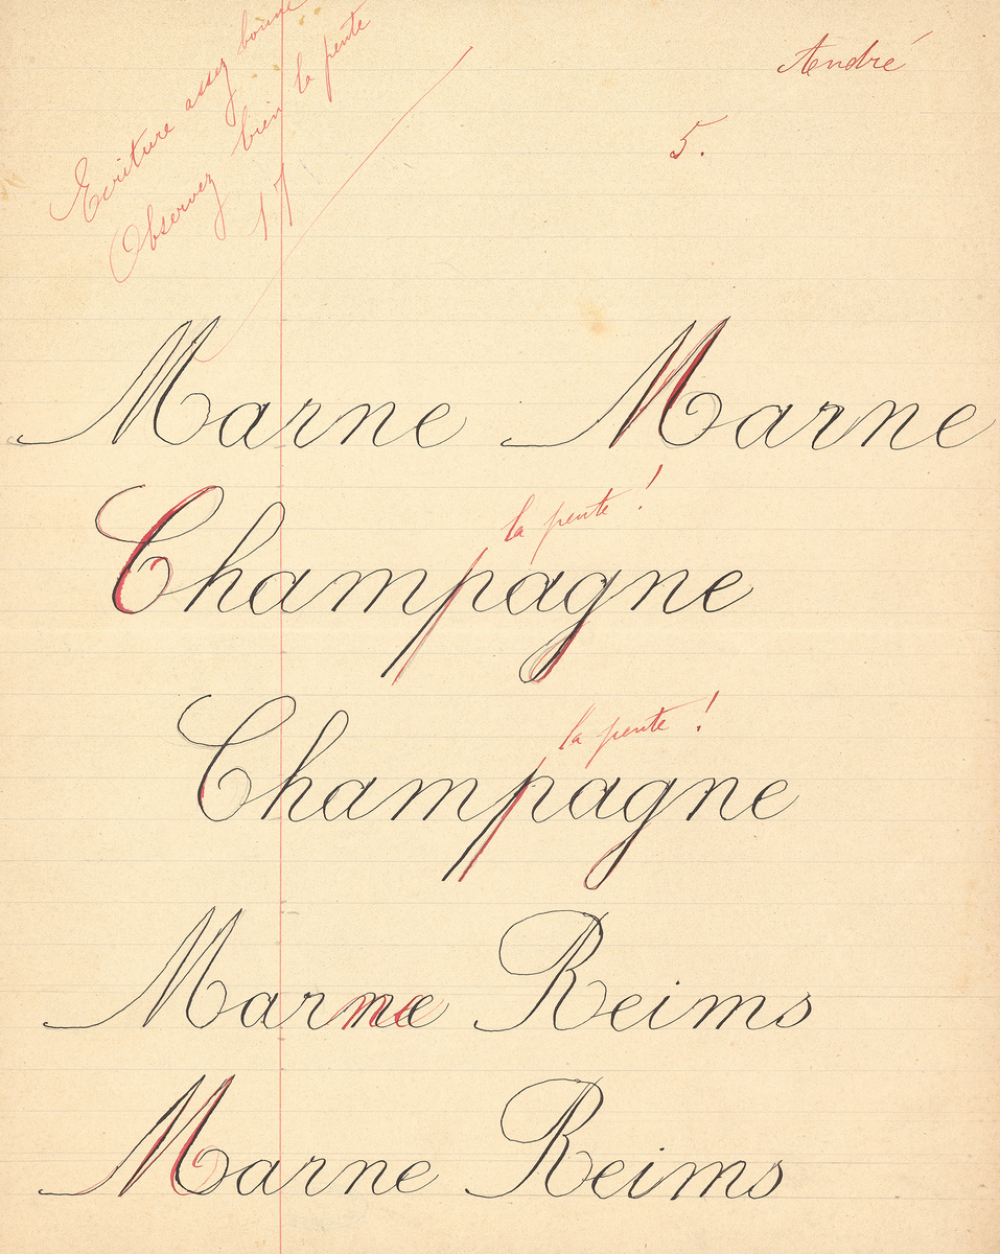 Ecriture assez bonne
Observez bien la pente
17
André
5.
Marne Marne
la pente !
Champagne
la pente !
Champagne
Marne Reims
Marne Reims